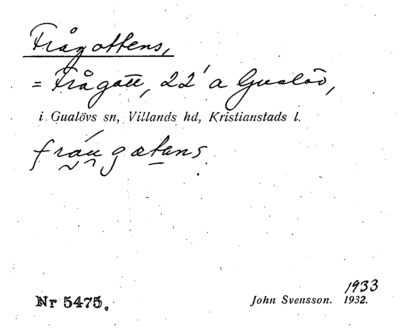 Frågottens,
= Frågått, 22' a Gualöv,
i Gualövs sn, Villands hd, Kristianstads l.
fråugatans.
1933
Nr 5475. John Svensson. 1932.